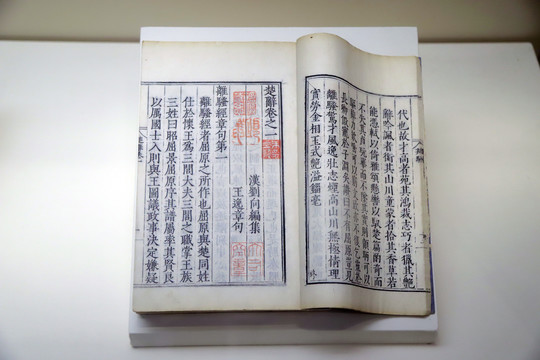 代也故才高者菀其鴻裁志巧者獵其艷
辭吟諷者銜其山川童蒙者拾其香草若
能憑軾以倚雅頌懸轡以馭楚篇酌奇而
不失其貞翫華而不墜其實則顧盼可以
驅辭力欬唾可以窮文致亦不復乞靈於
長卿假寵於子淵矣讚曰不有屈原豈見
離騷驚才風逸壯志煙高山川無極情理
實勞金相玉式艷溢錙毫
終
楚辭卷之一
漢劉向編集
王逸章句
離騷經章句第一
離騷經者屈原之所作也屈原與楚同姓
仕於懷王爲三閭大夫三閭之職掌王族
三姓曰昭屈景屈原序其譜屬率其賢良
以厲國士入則與王圖議政事決定嫌疑